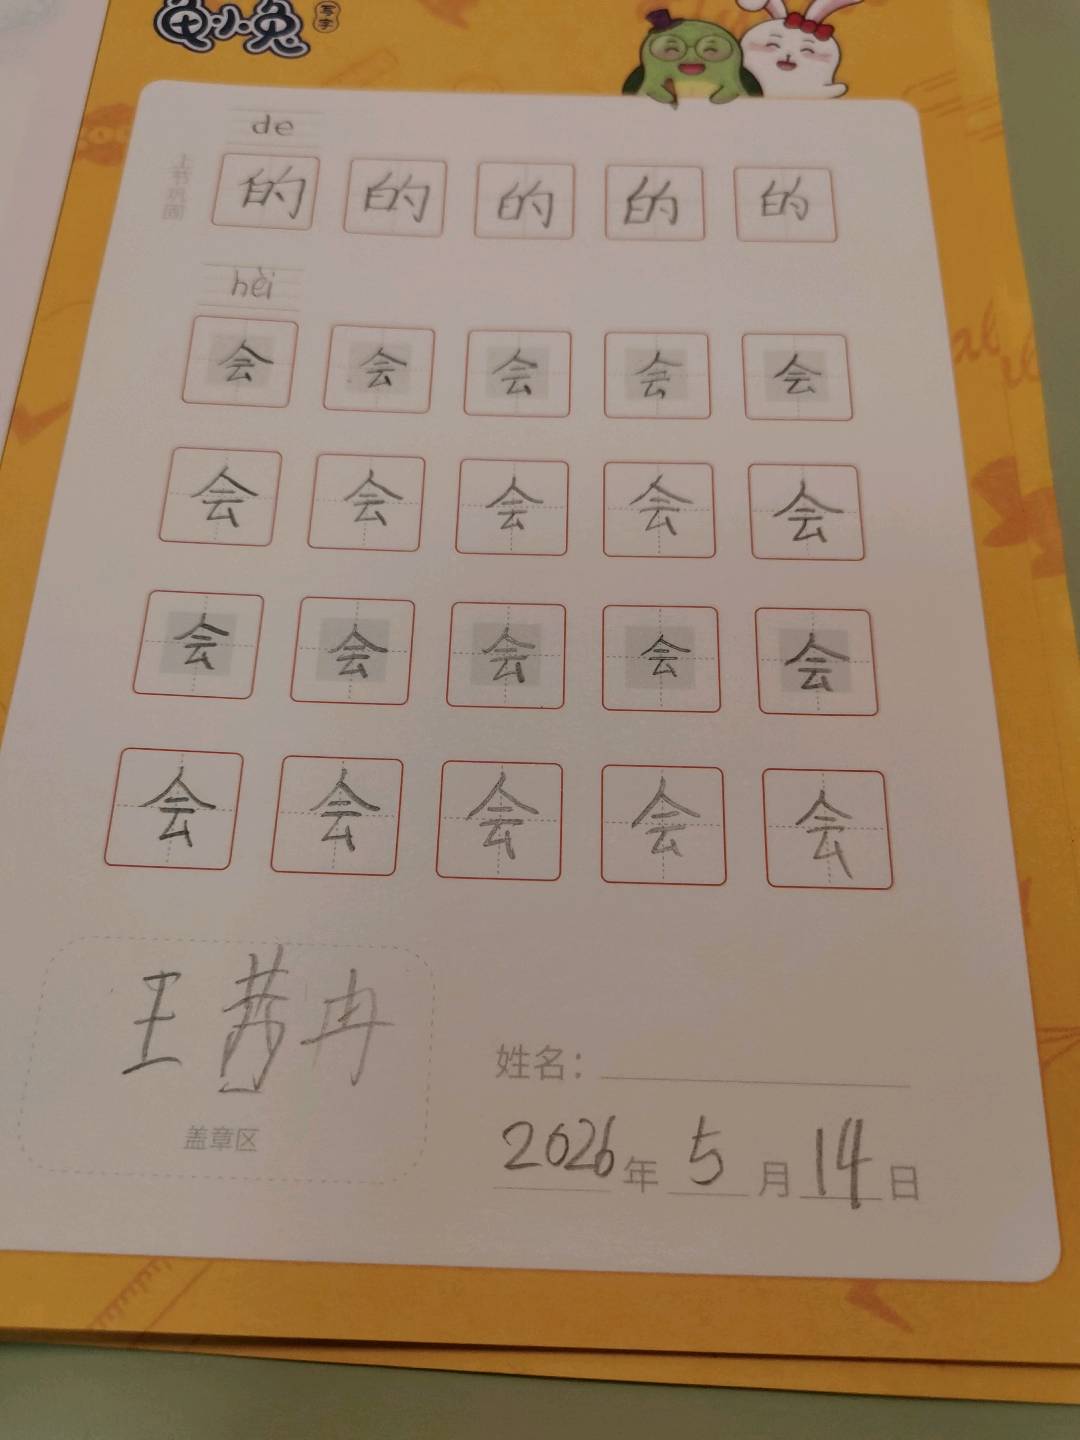 龟小兔 写字
de
上节巩固
的 的 的 的 的
hèi
会 会 会 会 会
会 会 会 会 会
会 会 会 会 会
会 会 会 会 会
王 冉
盖章区
姓名：
2026年 5月 14日